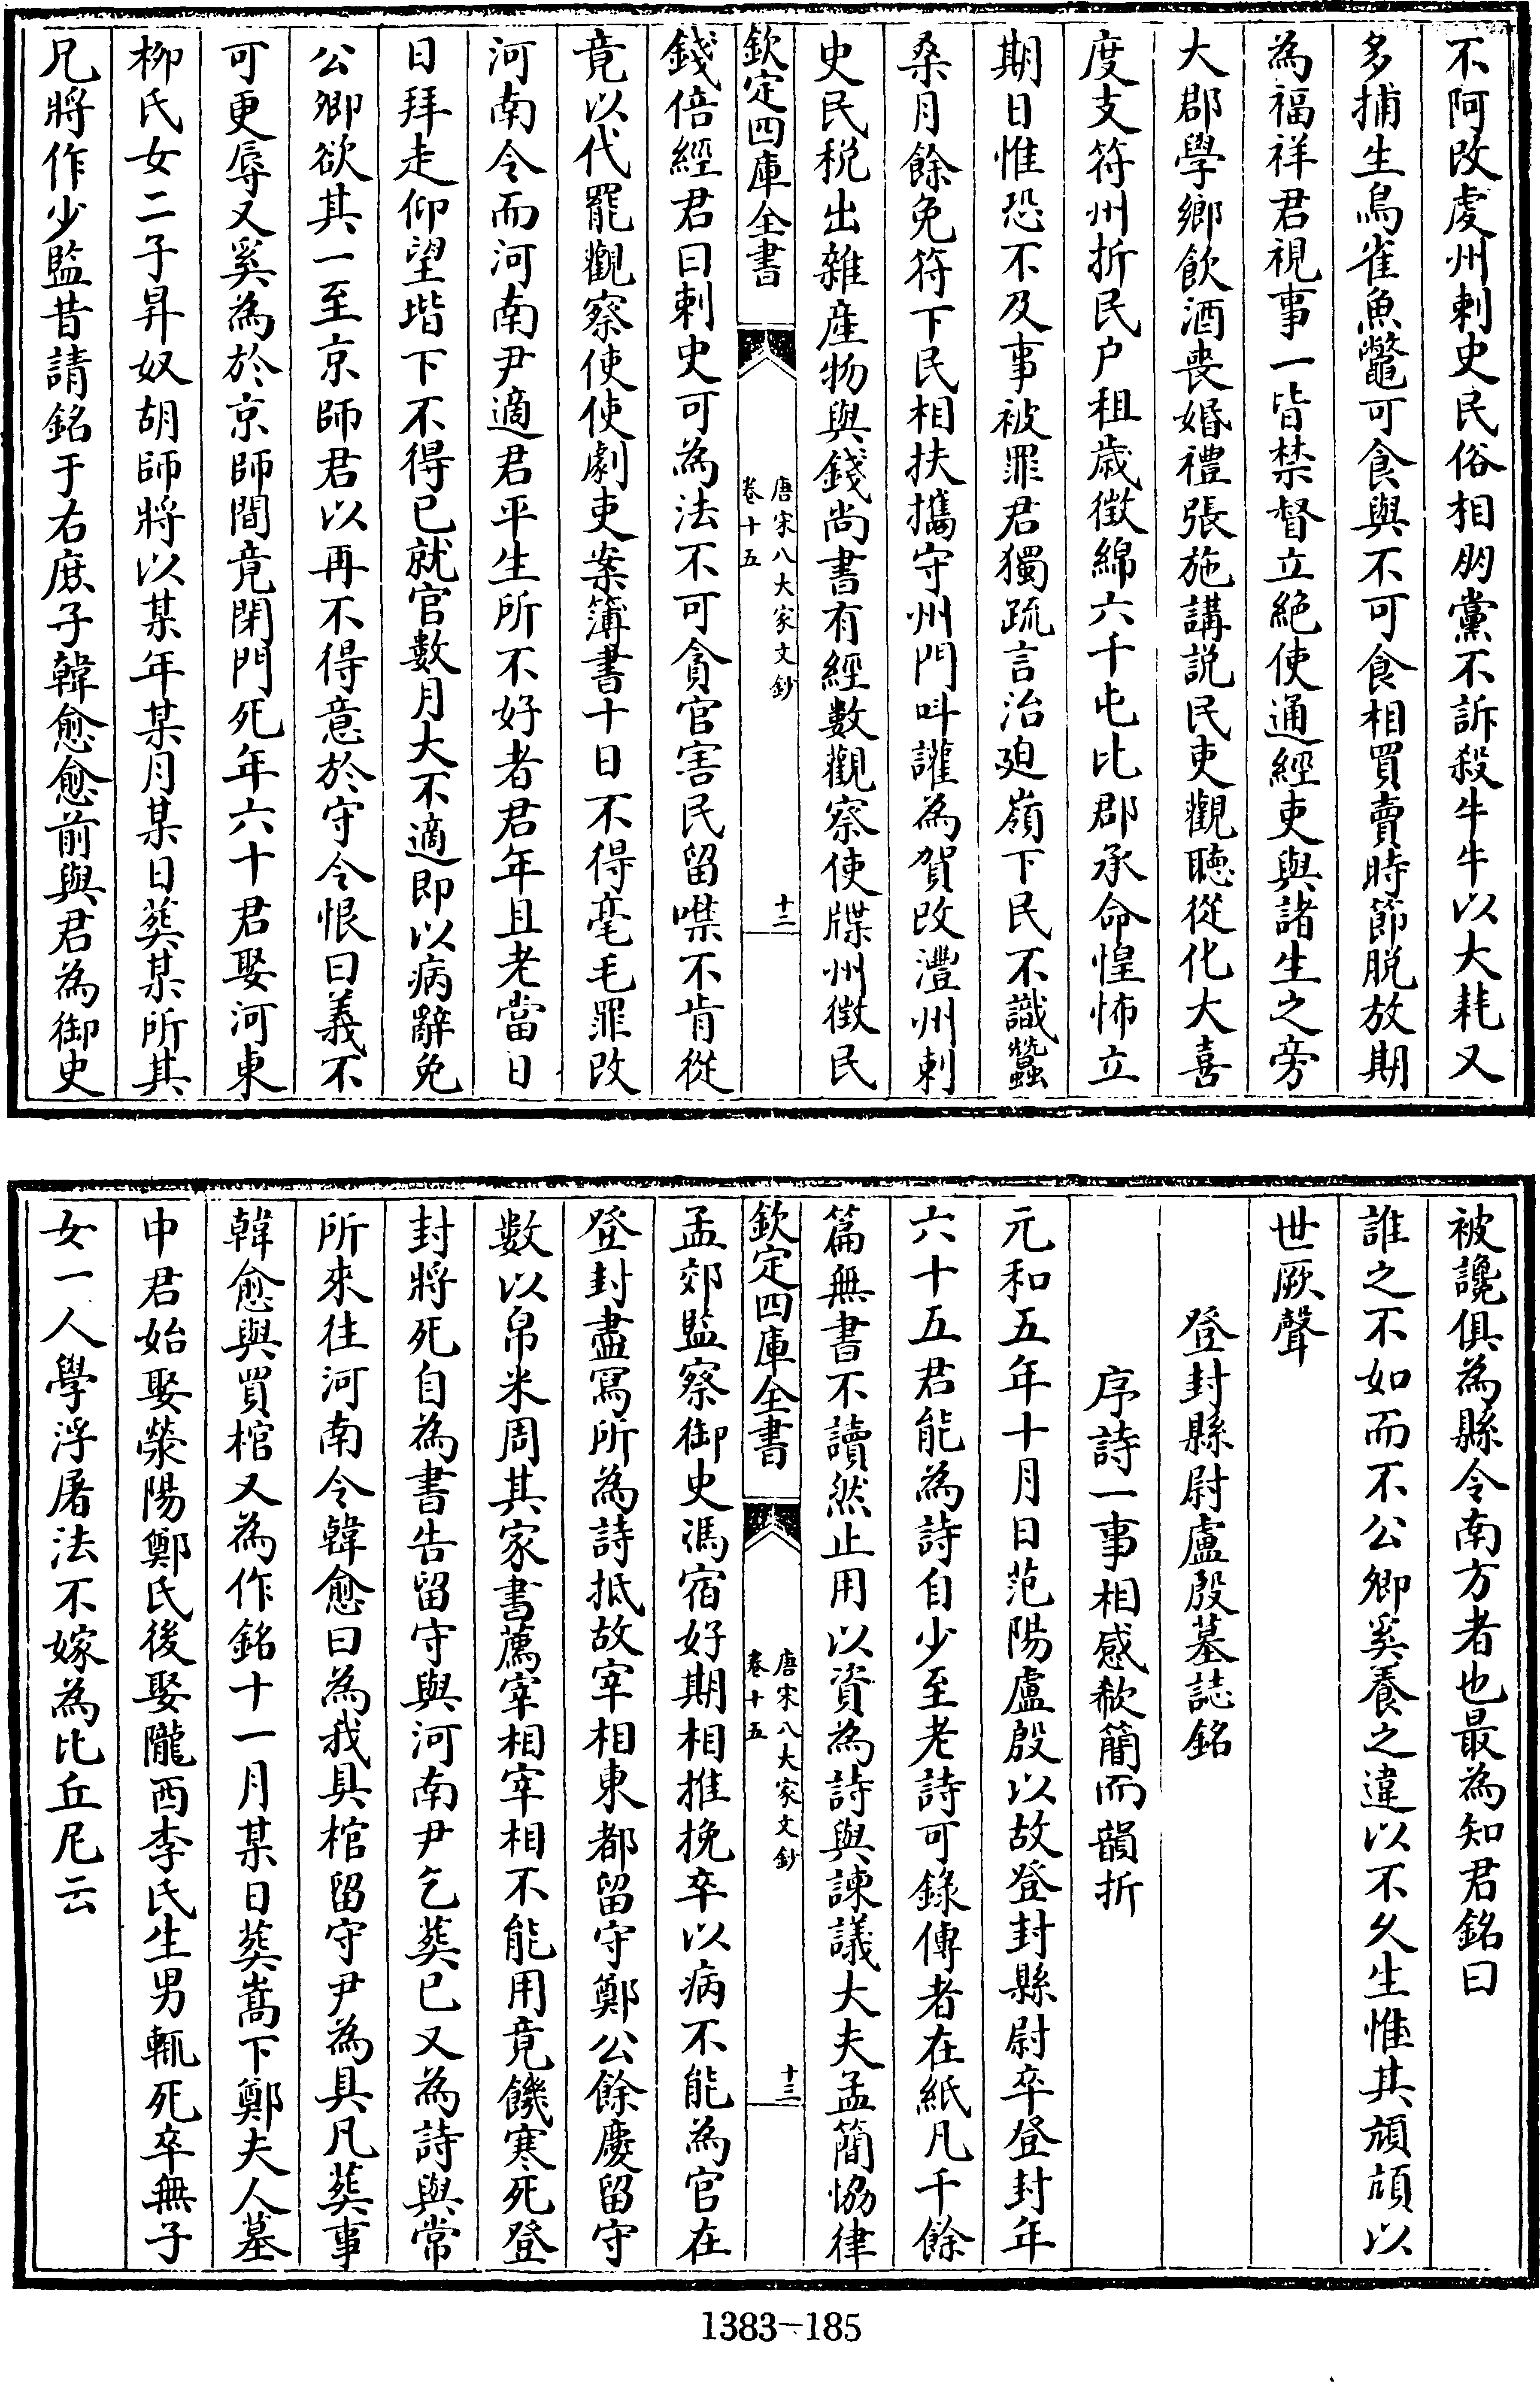 不阿改䖍州刺史民俗相朋黨不訴殺牛牛以大耗又
多捕生鳥雀魚鼈可食與不可食相買賣時節脱放期
為福祥君視事一皆禁督立絶使通經吏與諸生之旁
大郡學鄉飲酒喪婚禮張施講説民吏觀聽從化大喜
度支符州折民户租歳徵綿六千屯比郡承命惶怖立
期日惟恐不及事被罪君獨疏言治廹嶺下民不識蠶
桑月餘免符下民相扶攜守州門呌讙為賀改澧州刺
史民税出雜産物與錢尚書有經數觀察使牒州徵民
欽定四庫全書
唐宋八大家文鈔
卷十五
十二
錢倍經君曰刺史可為法不可貪官害民留噤不肯從
竟以代罷觀察使使劇吏案簿書十日不得毫毛罪改
河南令而河南尹適君平生所不好者君年且老當日
日拜走仰望堦下不得已就官數月大不適即以病辭免
公卿欲其一至京師君以再不得意於守令恨曰義不
可更辱又奚為於京師間竟閉門死年六十君娶河東
柳氏女二子昇奴胡師將以某年某月某日葬某所其
兄將作少監昔請銘于右庶子韓愈愈前與君為御史
被讒俱為縣令南方者也最為知君銘曰
誰之不如而不公卿奚養之違以不久生惟其頑頑以
世厥聲
登封縣尉盧殷墓誌銘
序詩一事相感欷簡而韻折
元和五年十月日范陽盧殷以故登封縣尉卒登封年
六十五君能為詩自少至老詩可錄傳者在紙凡千餘
篇無書不讀然止用以資為詩與諫議大夫孟簡協律
欽定四庫全書
唐宋八大家文鈔
卷十五
十三
孟郊監察御史馮宿好期相推挽卒以病不能為官在
登封盡寫所為詩抵故宰相東都留守鄭公餘慶留守
數以帛米周其家書薦宰相宰相不能用竟饑寒死登
封將死自為書告留守與河南尹乞葬已又為詩與常
所來往河南令韓愈曰為我具棺留守尹為具凡葬事
韓愈與買棺又為作銘十一月某日葬嵩下鄭夫人墓
中君始娶滎陽鄭氏後娶隴西李氏生男輒死卒無子
女一人學浮屠法不嫁為比丘尼云
1383-185